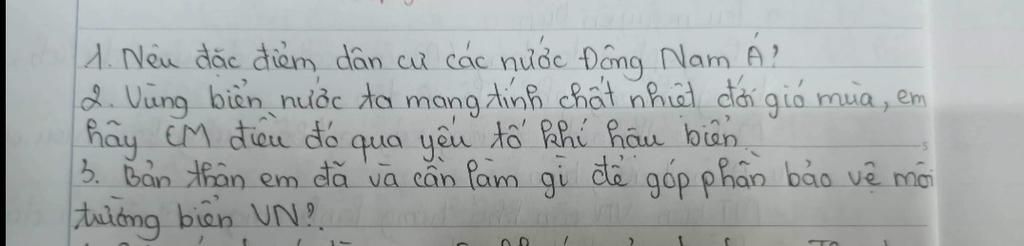 1. Nêu đặc điểm dân cư các nước Đông Nam Á?
2. Vùng biển nước ta mang tính chất nhiệt đới gió mùa, em
hãy CM điều đó qua yếu tố khí hậu biển.
3. Bản thân em đã và cần làm gì để góp phần bảo vệ môi
trường biển VN?.